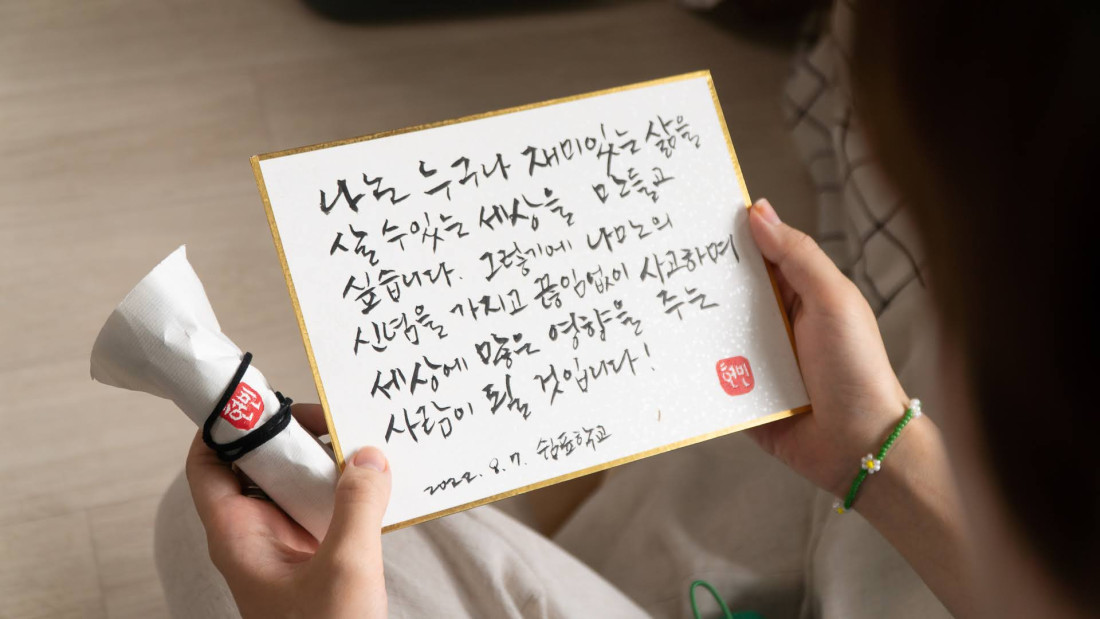 나는 누구나 재미있는 삶을
살 수 있는 세상을 만들고
싶습니다. 그렇기에 나만의
신념을 가지고 끊임없이 사고하며
세상에 많은 영향을 주는
사람이 될 것입니다!
현빈
2022. 8. 7. 쉼표학교
현빈